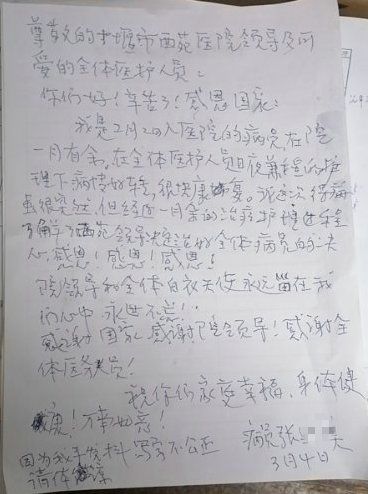 尊敬的十堰市西苑医院领导及可
爱的全体医护人员:
你们好!辛苦了!感恩国家!
我是2月2日入医院的病员在院
一月有余,在全体医护人员日夜兼程的护
理下病情好转,很快康复。我这次得病
虽很突然,但经过一月余的治疗护理过程
了解了西苑领导决心治好全体病员的决
心,感恩!感恩!感恩!
院领导和全体白衣天使永远留在我
的心中,永世不忘!
感谢国家,感谢院领导!感谢全
体医务员!
祝你们家庭幸福,身体健
康!万事如意!
病员张 夫
因为我手发抖,写字不公正
请体谅
3月4日